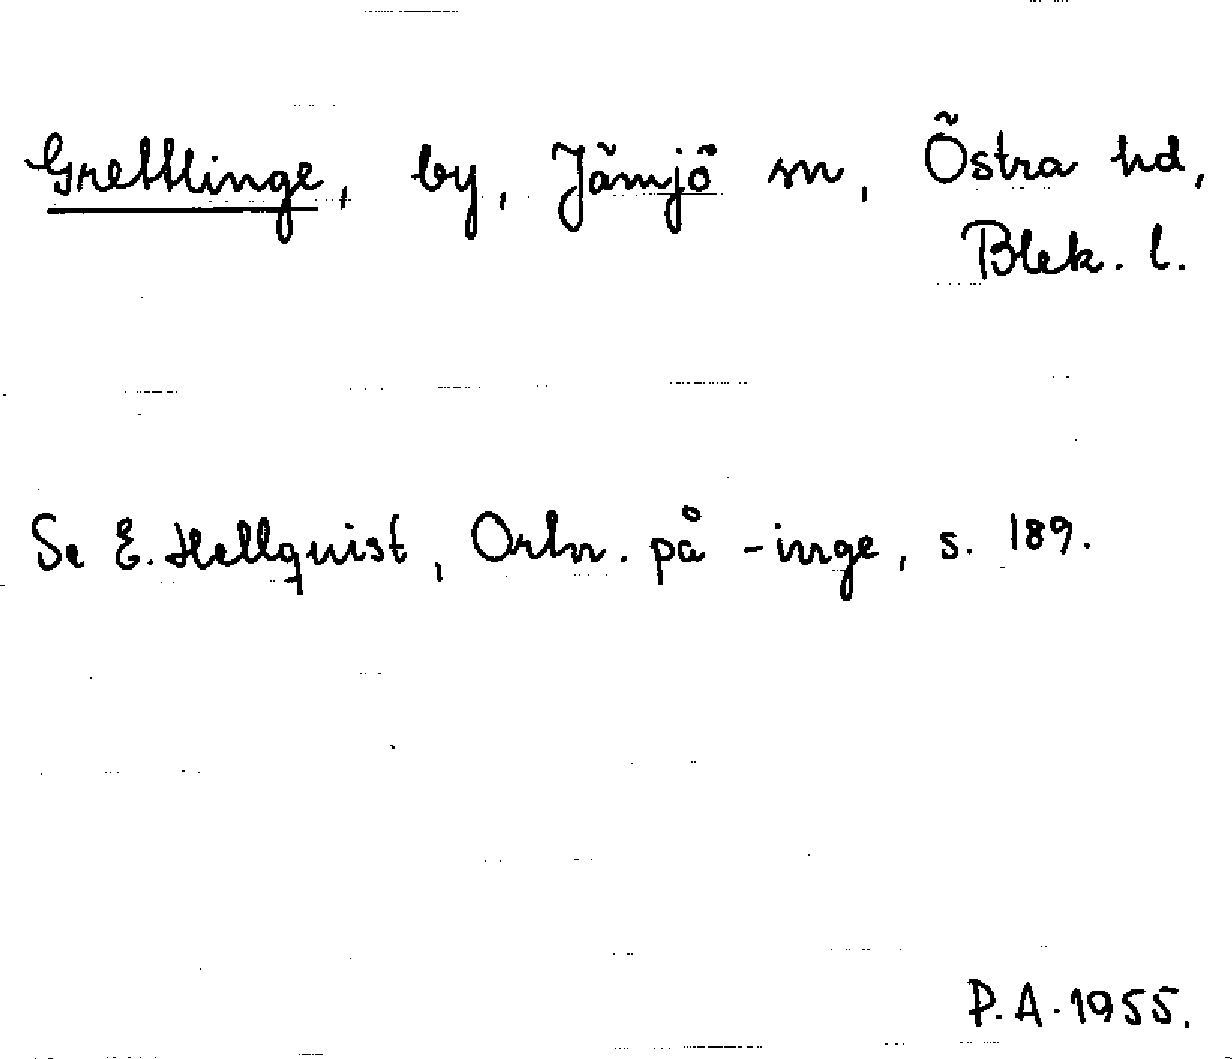 Grettlinge, by, Jämjö sn, Östra hd,
Blek. l.
Se E. Hellquist, Ortn. på -inge, s. 189.
P.A. 1955.